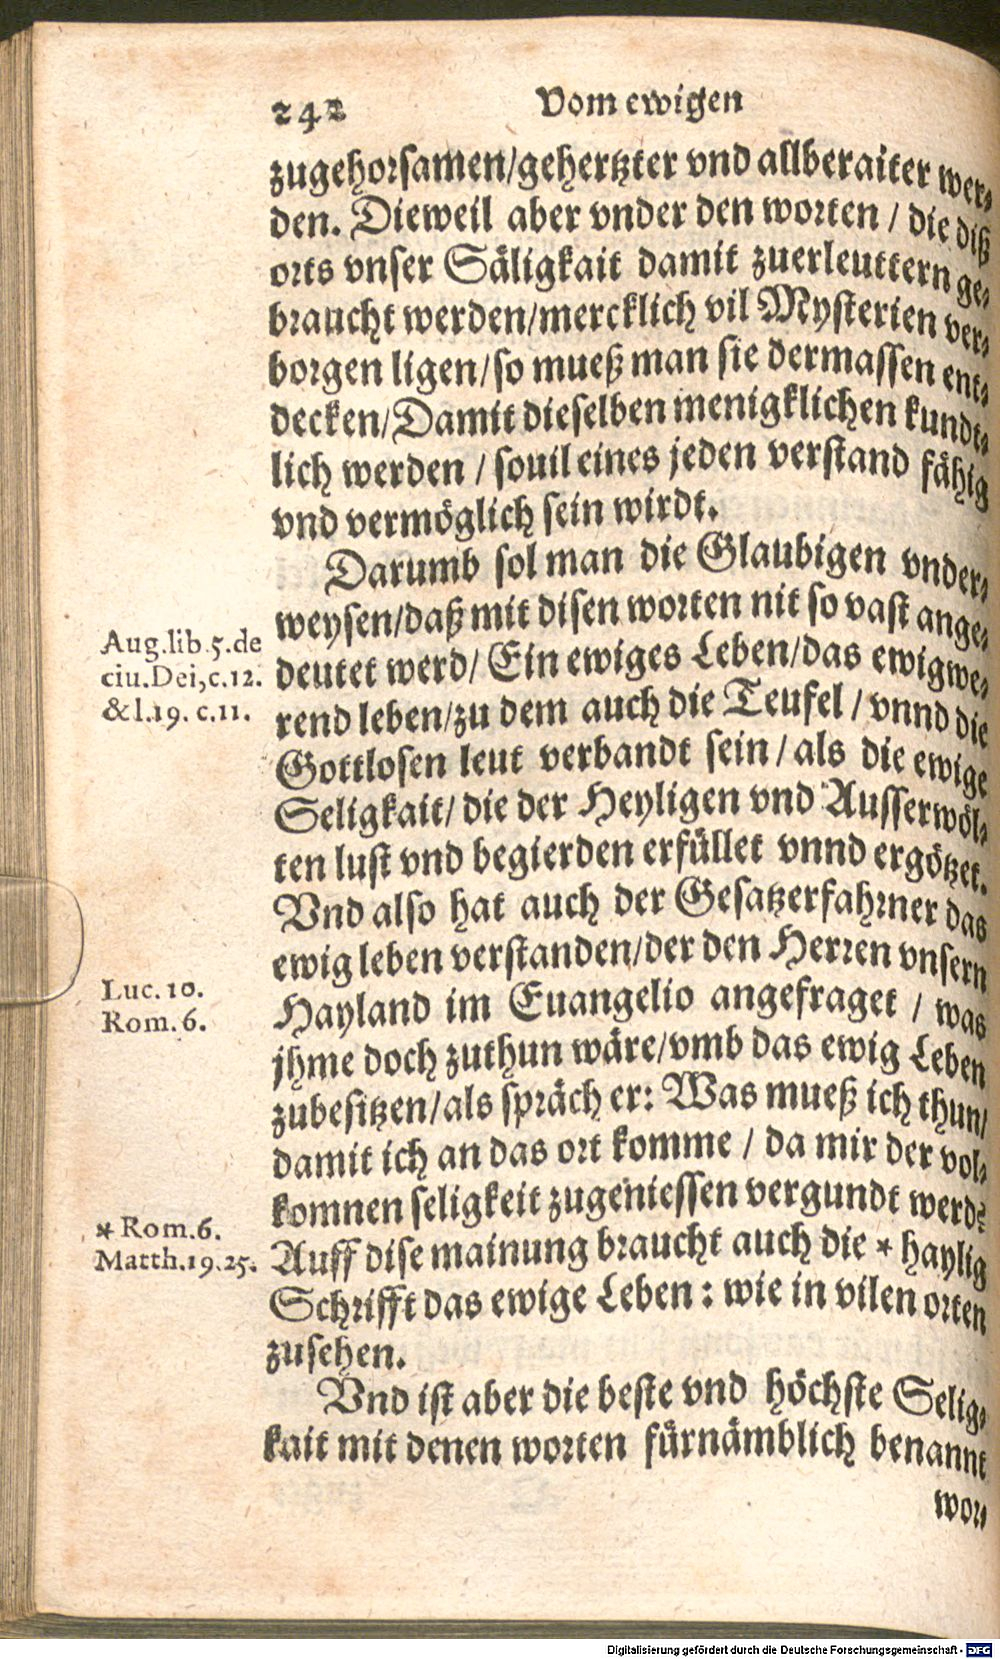 242 Vom ewigen
zugehorsamen/gehertzter vnd allberaiter wer⸗
den. Dieweil aber vnder den worten / die diß
orts vnser Säligkait damit zuerleuttern ge⸗
braucht werden/mercklich vil Mysterien ver⸗
borgen ligen/so mueß man sie dermassen ent⸗
decken/Damit dieselben menigklichen kundt⸗
lich werden / souil eines jeden verstand fähig
vnd vermöglich sein wirdt.
Darumb sol man die Glaubigen vnder⸗
weysen/daß mit disen worten nit so vast ange⸗
Aug.lib.5.de
ciu.Dei,c.12.
&l.19. c.11.
deutet werd/ Ein ewiges Leben/das ewigwe⸗
rend leben/zu dem auch die Teufel / vnnd die
Gottlosen leut verbandt sein / als die ewige
Seligkait/ die der Heyligen vnd Ausserwöl⸗
ten lust vnd begierden erfüllet vnnd ergötzet.
Vnd also hat auch der Gesatzerfahrner das
ewig leben verstanden/der den Herren vnsern
Luc. 10.
Rom. 6.
Hayland im Euangelio angefraget / was
jhme doch zuthun wäre/vmb das ewig Leben
zubesitzen/als spräch er: Was mueß ich thun/
damit ich an das ort komme / da mir der vol⸗
komnen seligkeit zugeniessen vergundt werd?
* Rom.6.
Matth.19.25.
Auff dise mainung braucht auch die * haylig
Schrifft das ewige Leben : wie in vilen orten
zusehen.
Vnd ist aber die beste vnd höchste Selig⸗
kait mit denen worten fürnämblich benannt
wor⸗
Digitalisierung gefördert durch die Deutsche Forschungsgemeinschaft - DFG